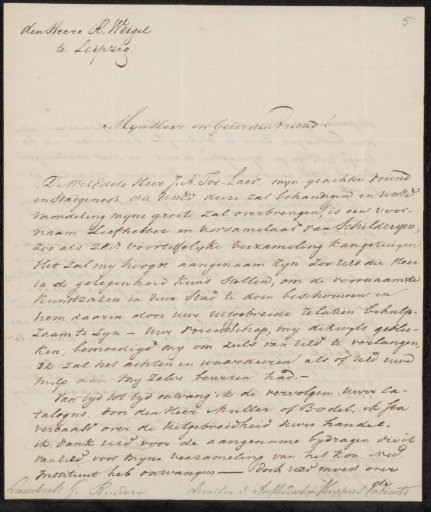 5
den Heere R. Weigel
te Leipzig
Mynheer en Geëerden Vriend!
De WelEdele Heer J. A. Toe Laer, myn geachten vriend
en Stadgenoot, die UwEd deze zal behandigen en UwEd
mondeling myne groete zal overbrengen, is een voor-
naam Liefhebber en verzamelaar van Schilderyen,
zoo als zyn voortreffelyke verzameling kan getuigen
Het zal my hoogst aangenaam zyn zoo UEd die Heer
in de gelegenheid kunt stellen, om de voornaamste
Kunstzaken in Uwe Stad te doen beschouwen en
hem daarin door uwe uitgebreide relatien behulp-
zaam te zyn — Uwe vriendschap, my dikwyls geble-
ken, bemoedigd my om zulks van UEd te verlangen,
Ik zal het achten en waarderen als of UEd uwe
hulp aan my zelve bewezen had. —
Van tyd tot tyd ontvang ik de vervolgen uwer Ca-
talogus, door den Heer Muller of Bodel, ik sta
verbaast over de uitgebreidheid uwer handel.
ik dank UEd voor de aangename bydragen die ik
van UEd voor myne verzameling van het Kon. Ned.
Instituut heb ontvangen — Doch UEd moest over
de
Lamberts G. Directeur